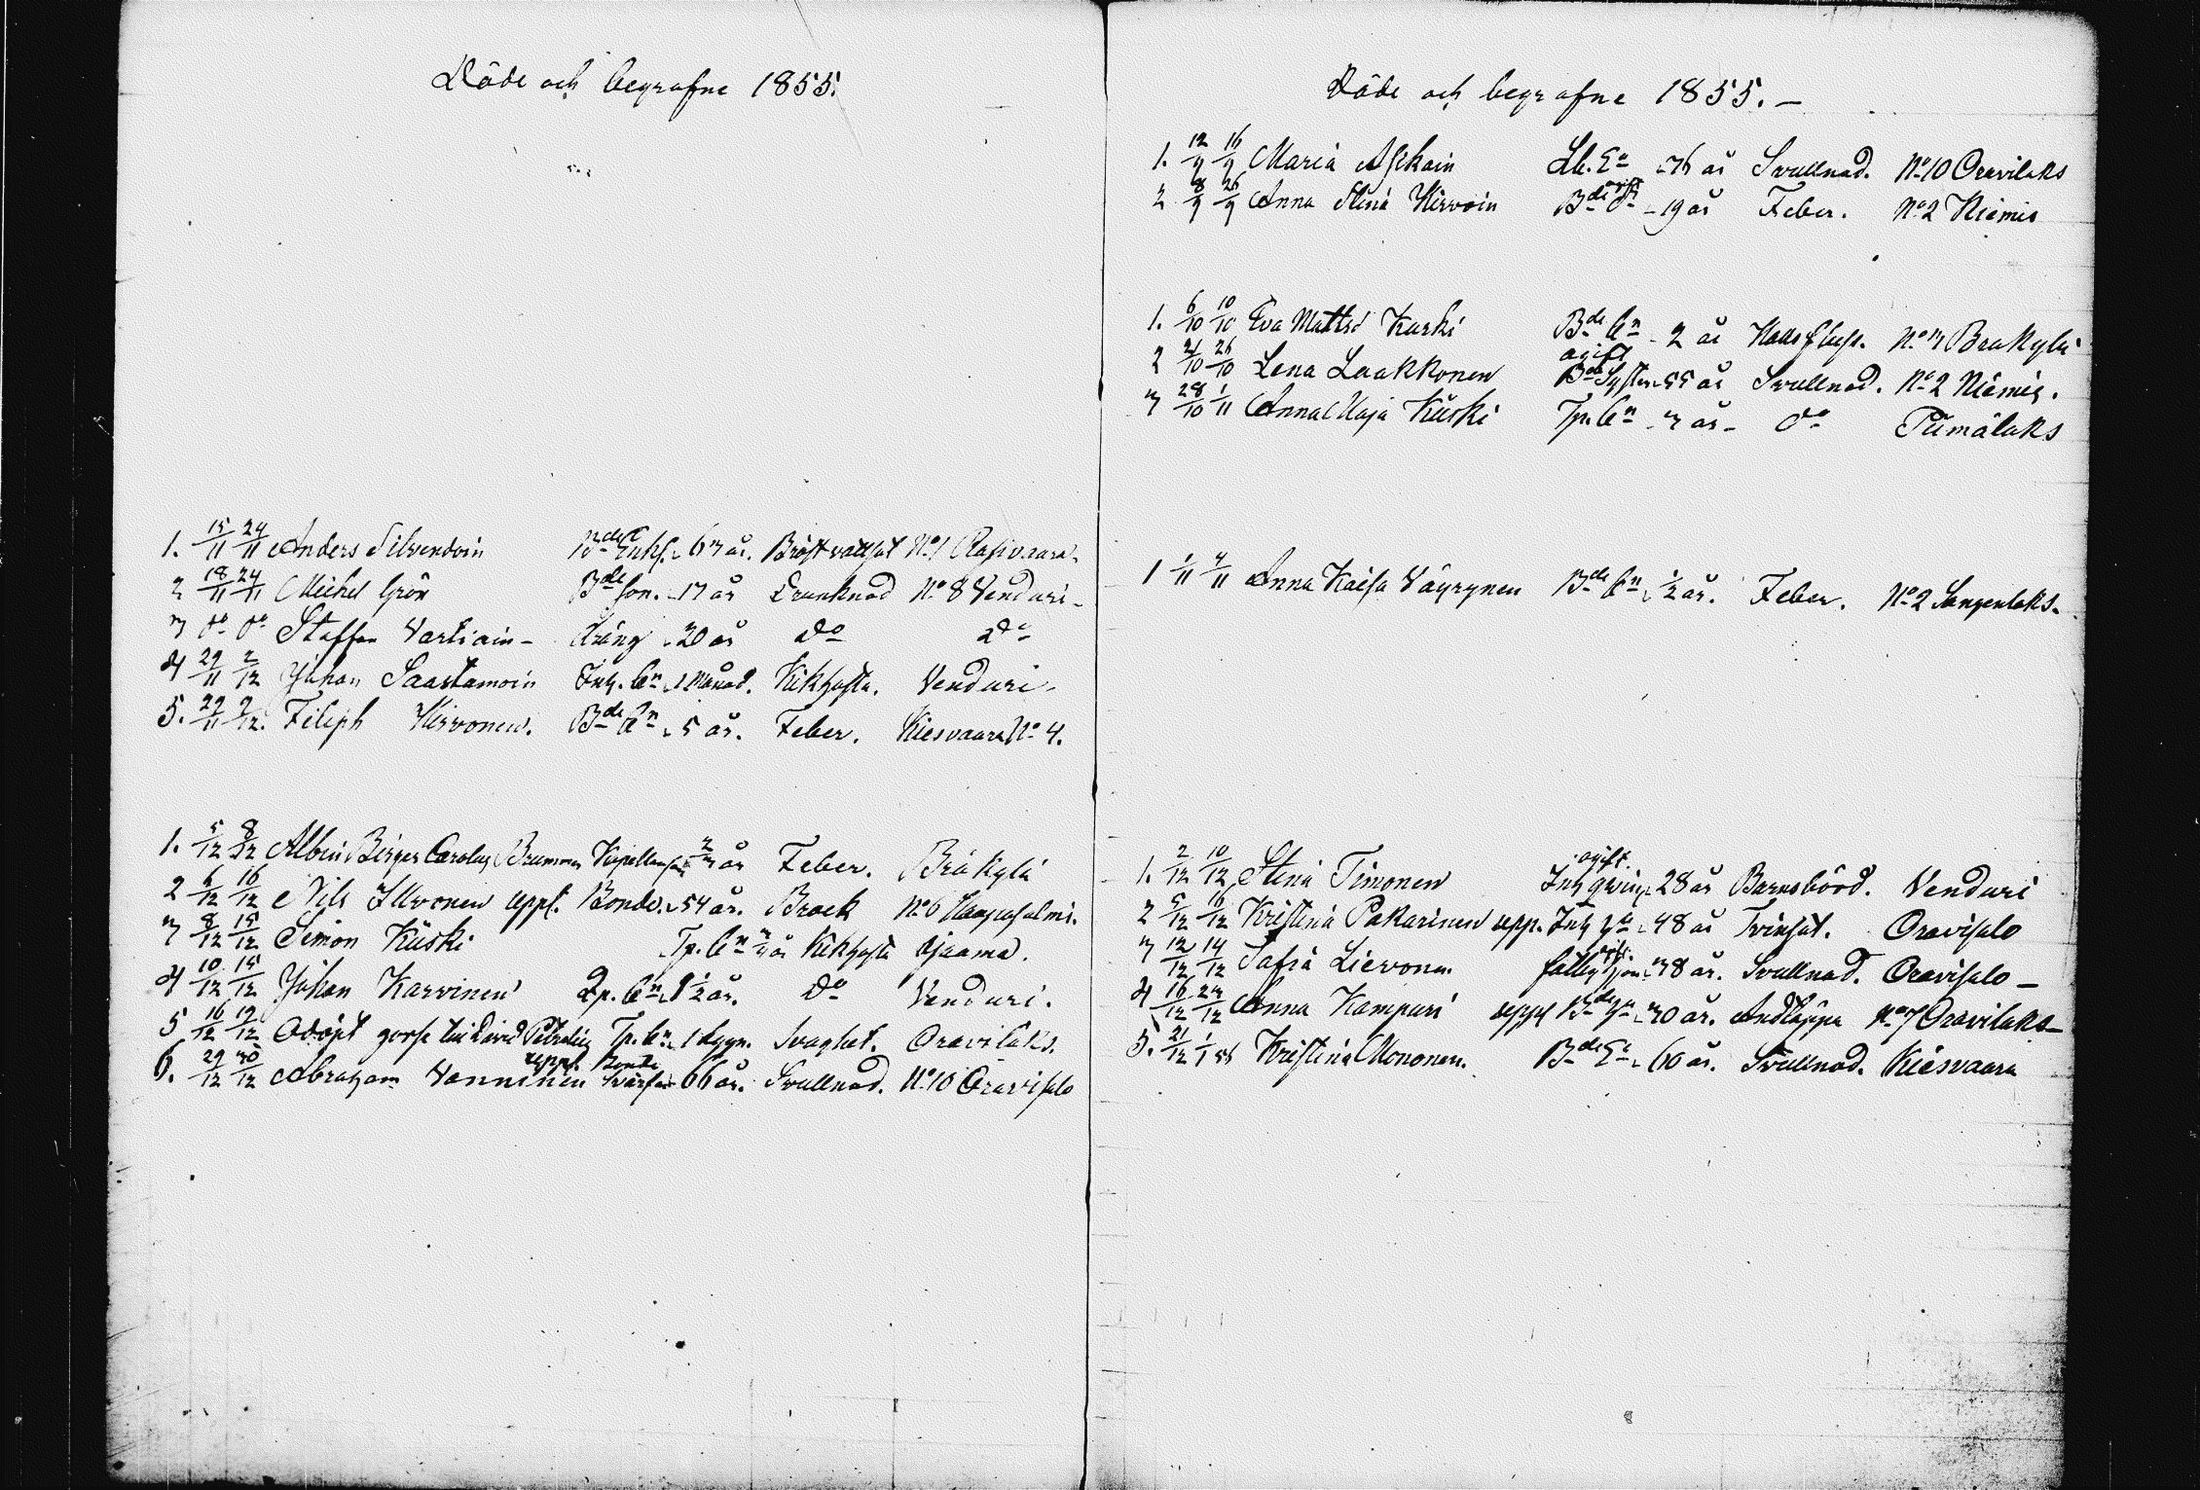 Döde och begrafne 1855.
1. 15/11 24/11 Anders Silvendoin Bde Enkl. 63 år. Bröstvattsot No 1 Rasivaara.
2 18/11 24/11 Michel Grön Bde son. 17 år Drunknad No 8 Venduri
3 do do Staffan Vartiain Dräng 20 år do do
4 29/11 2/12 Johan Saastamoin Inh. bn 1 Månad. Kikhosta. Venduri
5. 29/11 2/12. Filiph Hirvonen. Bde bn 5 år. Feber. Kiesvaara No 4.
1. 5/12 8/12 Albin Birger Carolus Brummer 2/3 år Feber. Bråkylä
2 6/12 16/12 Nils Illvonen uppl. Bonde. 54 år. Brock No 6
3 8/12 15/12 Simon Kiiski Tp. bn 3/4 år Kikhosta Ojaama.
4 10/12 15/12 Johan Karvinen Lp. bn 1 1/2 år. do Venduri.
5 16/12 19/12 Odöpt gosse David Tp. bn 1 dygn. Svaghet. Oravilaks.
6. 29/12 30/12 Abraham Vanninen uppl. Bonde 66 år. Svullnad. No 10 Oravisalo
Döde och begrafne 1855.
1. 12/9 16/9 Maria Asikain Lb. Ea 76 år Svullnad. No 10 Oravilaks
2 8/9 26/9 Anna Stina Hirvoin Bde ogift dr 19 år Feber. No 2 Niemis
1. 6/10 10/10 Eva Mattsd Kurki Bde bn 2 år Halsfluss. No 3 Bråkylä
2 21/10 26/10 Lena Laakkonen ogift Bde Syster 55 år Svullnad. No 2 Niemis.
3 28/10 1/11 Anna Maja Kiiski Tp. bn 3 år do Piimälaks
1 1/11 4/11 Anna Kaisa Väyrynen Bde bn 1/2 år. Feber. No 2 Sangenlaks.
1. 2/12 10/12 Stina Timonen ogift Inh qvin. 28 år Barnsbörd. Venduri
2 5/12 16/12 Kristina Pakarinen upp. Inh ga 48 år Tvinsot. Oravisalo
3 12/12 14/12 Safia Lievonen ogift 38 år. Svullnad. Oravisalo
4 16/12 23/12 Anna Kampuri uppl Bde ga 30 år. Andtäppa No 7 Oravilaks
5. 21/12 1/1 56 Kristina Mononen. Bde Ea 60 år. Svullnad. Kiesvaara